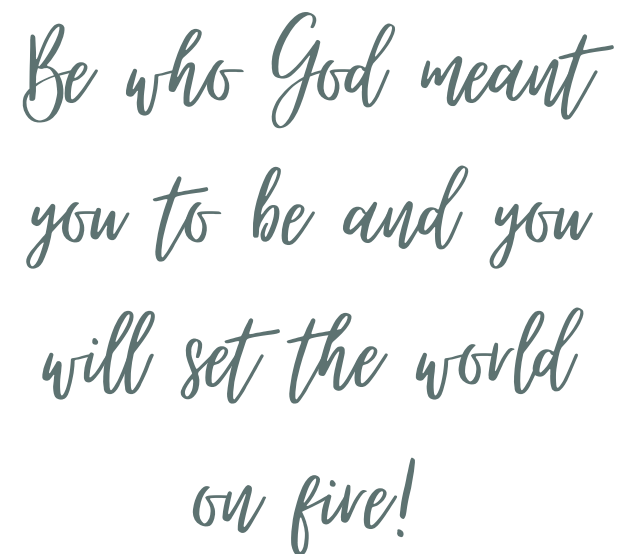 Be who God meant
you to be and you
will set the world
on fire!